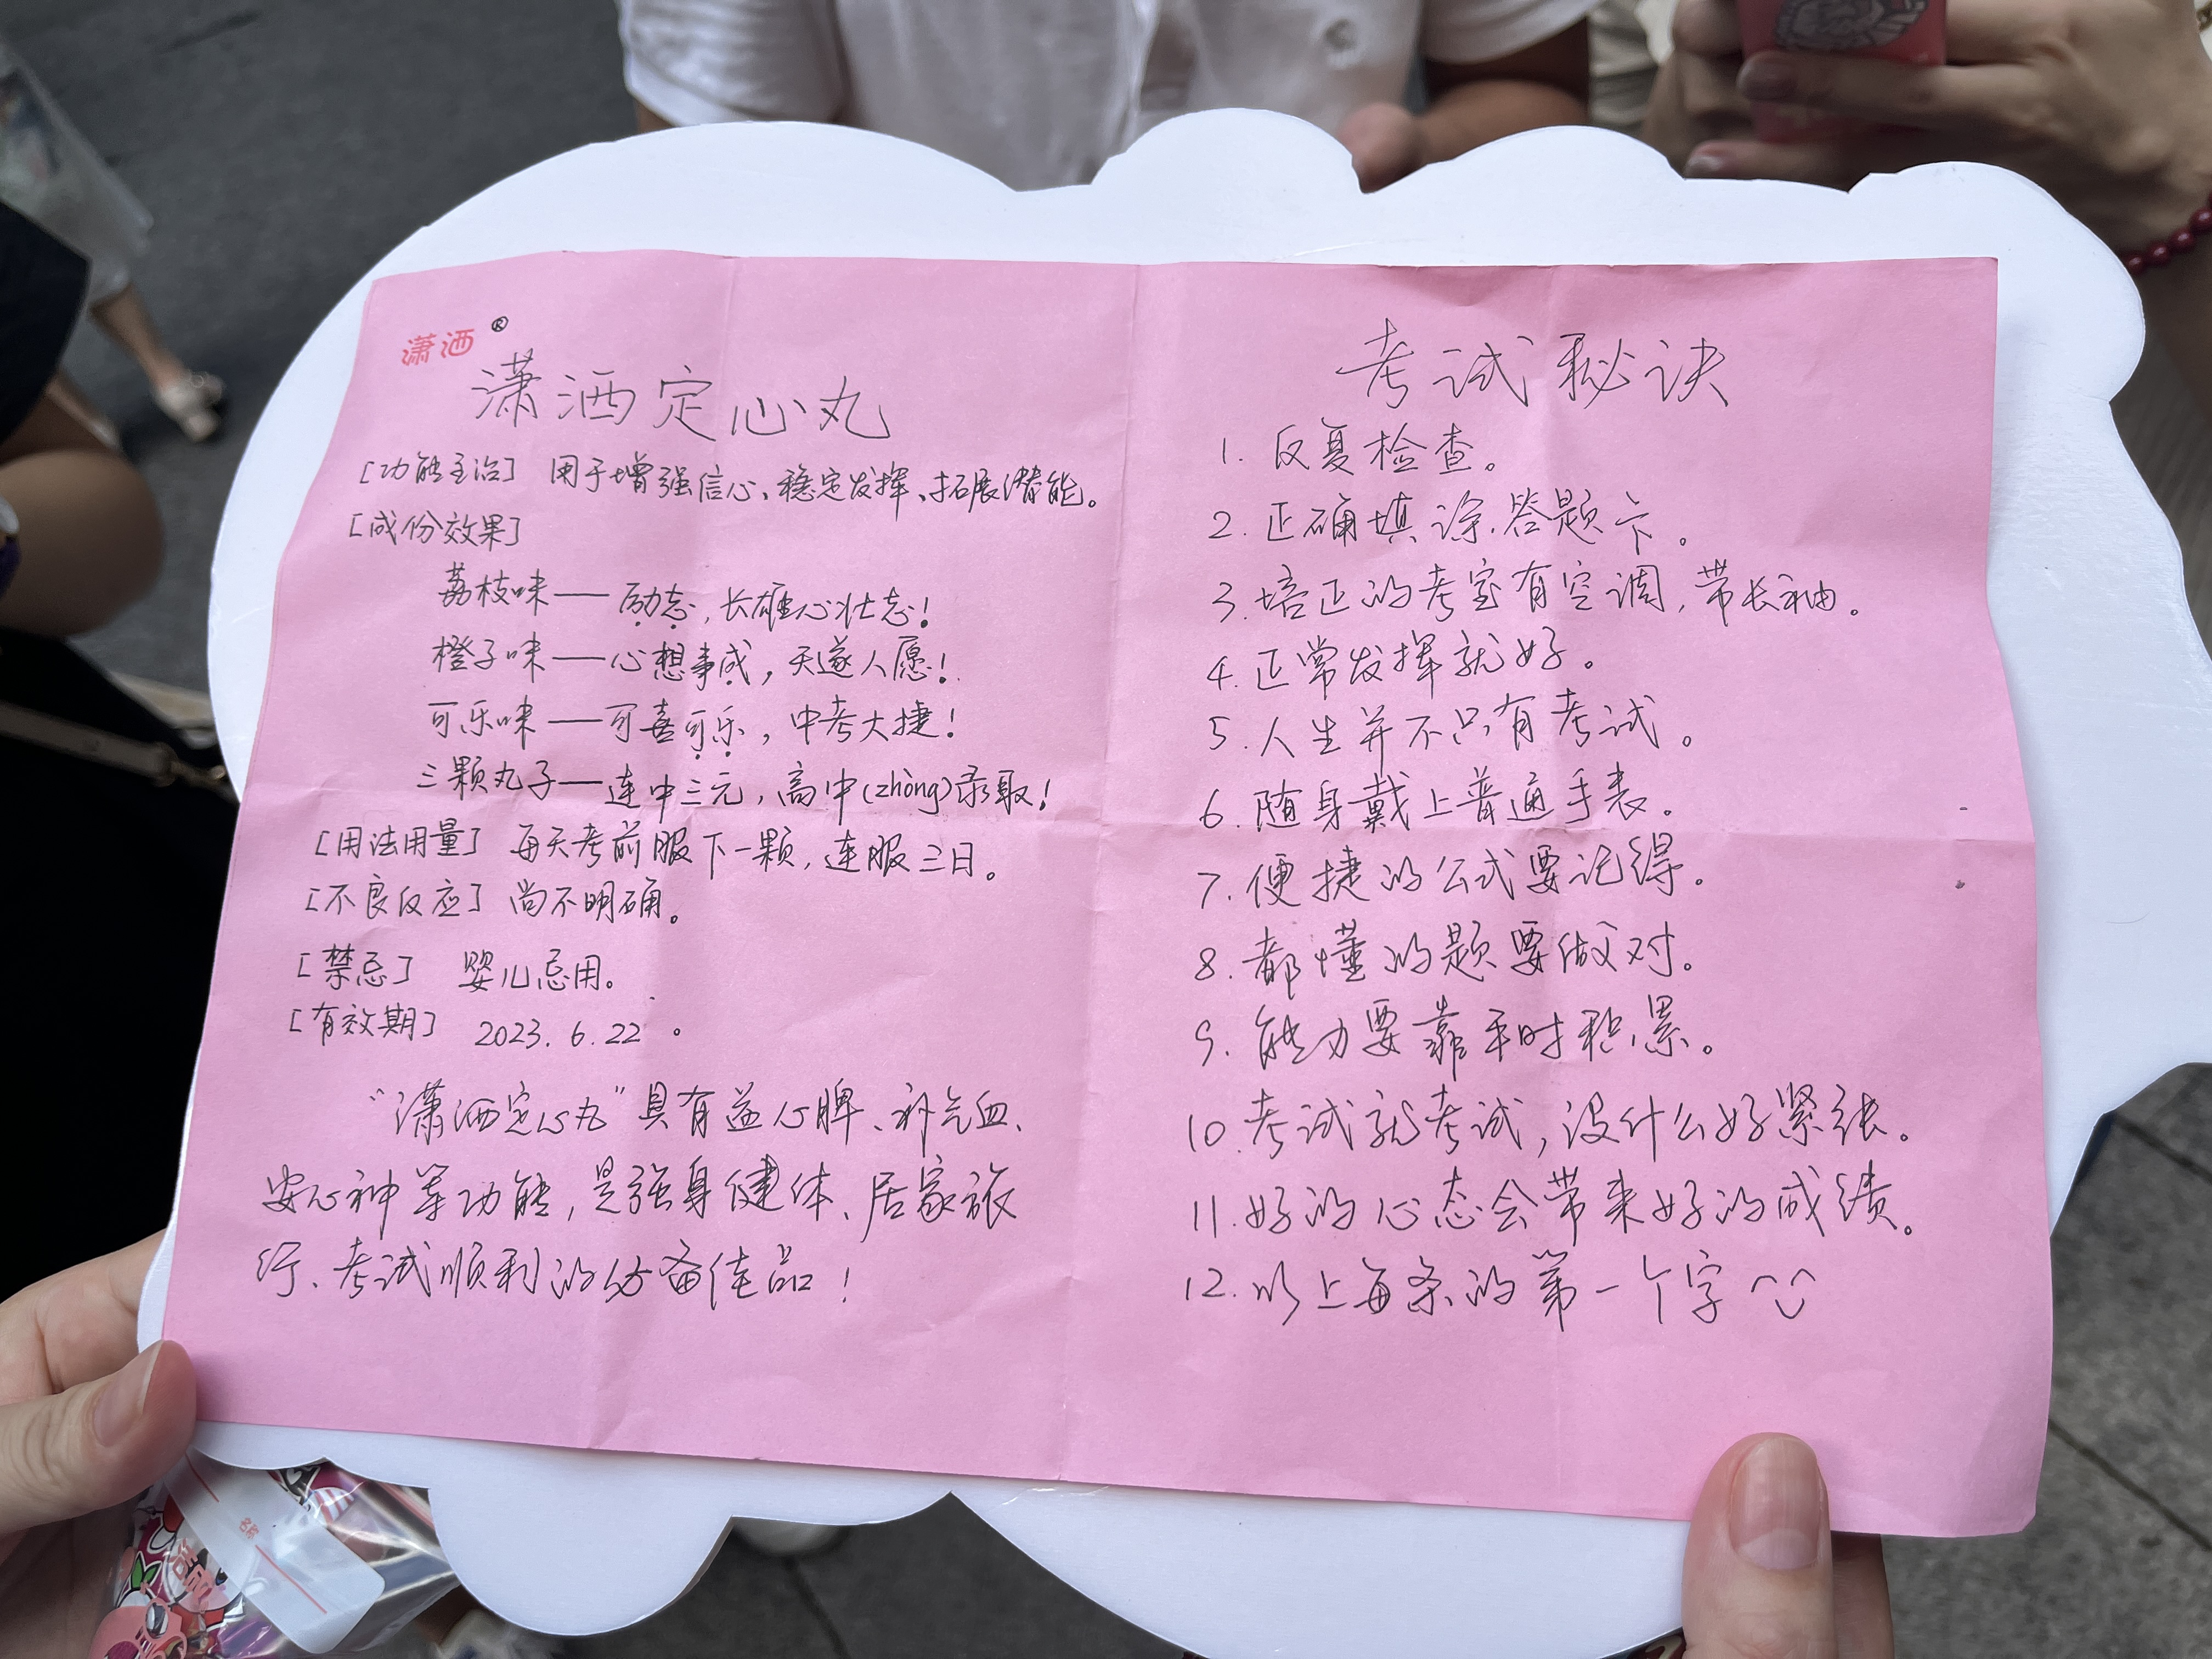 潇洒®
潇洒定心丸
[功能主治] 用于增强信心、稳定发挥、拓展潜能。
[成份效果]
荔枝味——励志，长雄心壮志！
橙子味——心想事成，天遂人愿！
可乐味——可喜可乐，中考大捷！
三颗丸子——连中三元，高中(zhòng)录取！
[用法用量] 每天考前服下一颗，连服三日。
[不良反应] 尚不明确。
[禁忌] 婴儿忌用。
[有效期] 2023.6.22。
“潇洒定心丸”具有益心脾、补气血、
安心神等功能，是强身健体、居家旅
行、考试顺利的必备佳品！
考试秘诀
1. 反复检查。
2. 正确填涂答题卡。
3. 培正的考室有空调，带长袖。
4. 正常发挥就好。
5. 人生并不只有考试。
6. 随身戴上普通手表。
7. 便捷的公式要记得。
8. 都懂的题要做对。
9. 能力要靠平时积累。
10. 考试就考试，没什么好紧张。
11. 好的心态会带来好的成绩。
12. 以上每条的第一个字